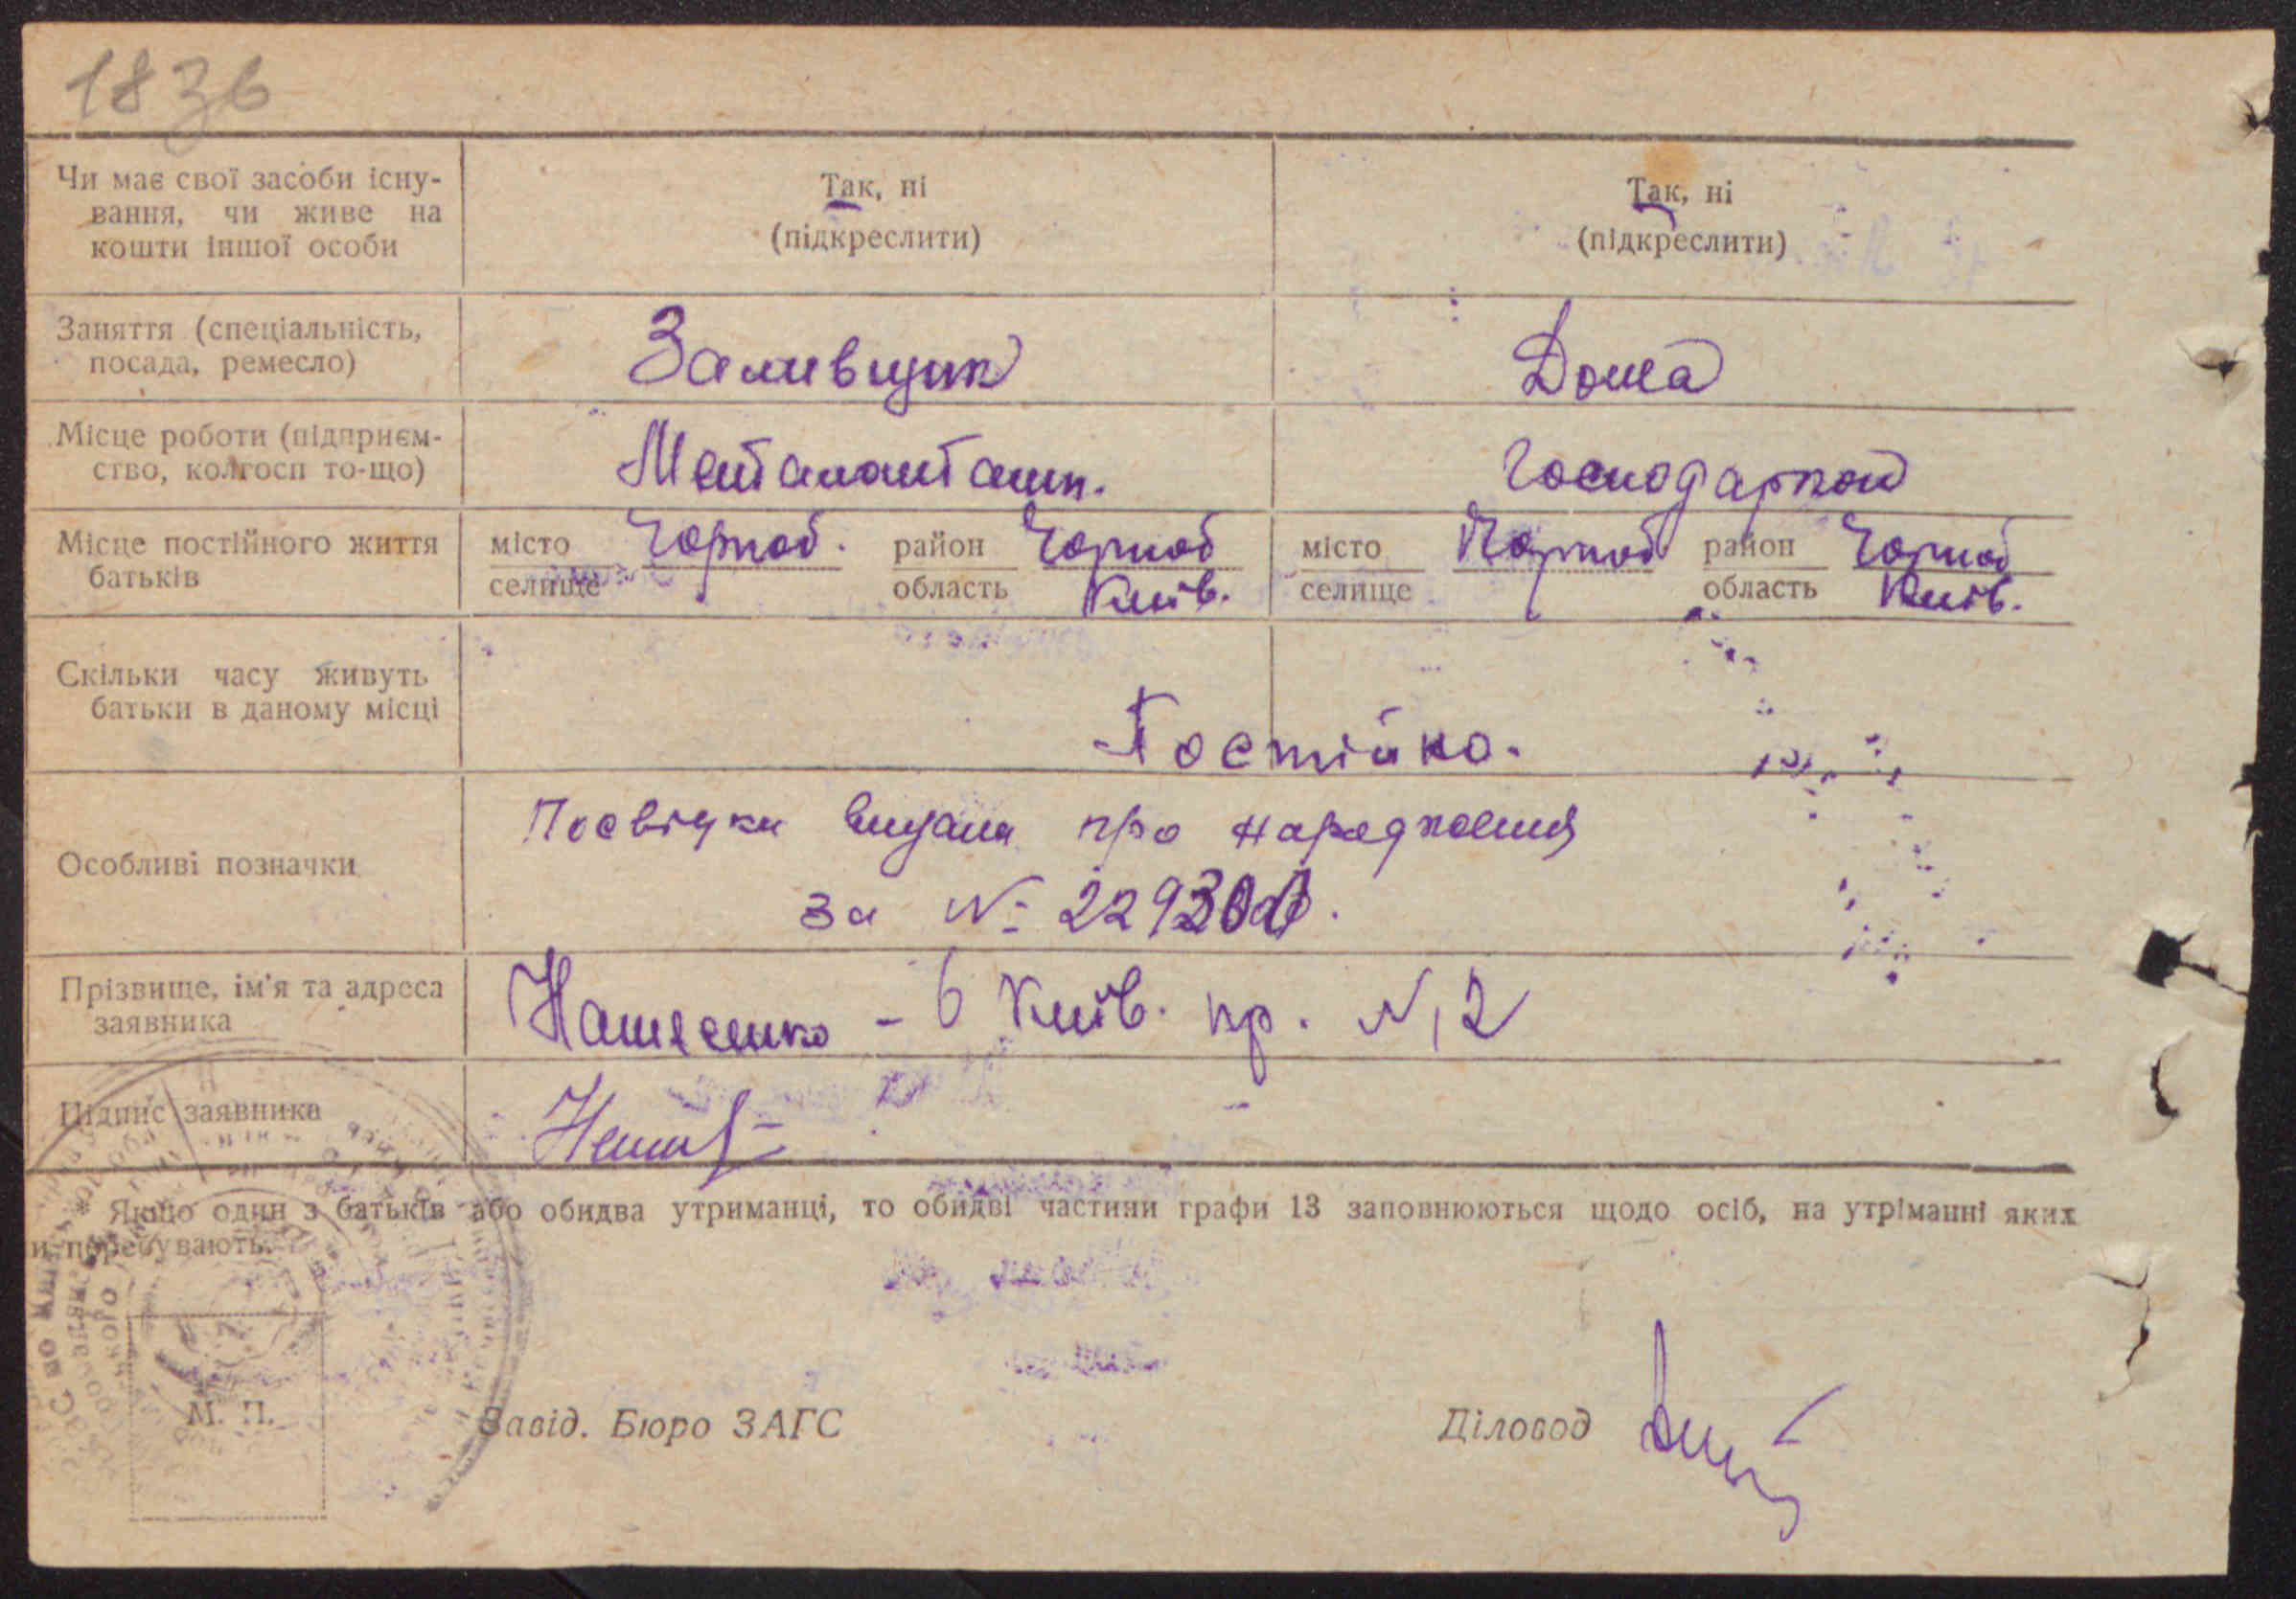 1836
Чи має свої засоби існу-
вання, чи живе на
кошти іншої особи
Так, ні
(підкреслити)
Так, ні
(підкреслити)
Заняття (спеціальність,
посада, ремесло)
Заливщик
Дома
Місце роботи (підприєм-
ство, колгосп то-що)
Господаркой
Місце постійного життя
батьків
місто Чорноб. район Чорноб
селище область Київ.
місто Чорноб район Чорноб
селище область Київ.
Скільки часу живуть
батьки в даному місці
Постійно.
Особливі позначки
Посвідка видана про народження
за №
Прізвище, ім'я та адреса
заявника
Київ. пр. № 2
Підпис заявника
* Якщо один з батьків або обидва утриманці, то обидві частини графи 13 заповнюються щодо осіб, на утріманні яких
и перебувають.
М. П.
Завід. Бюро ЗАГС
Діловод